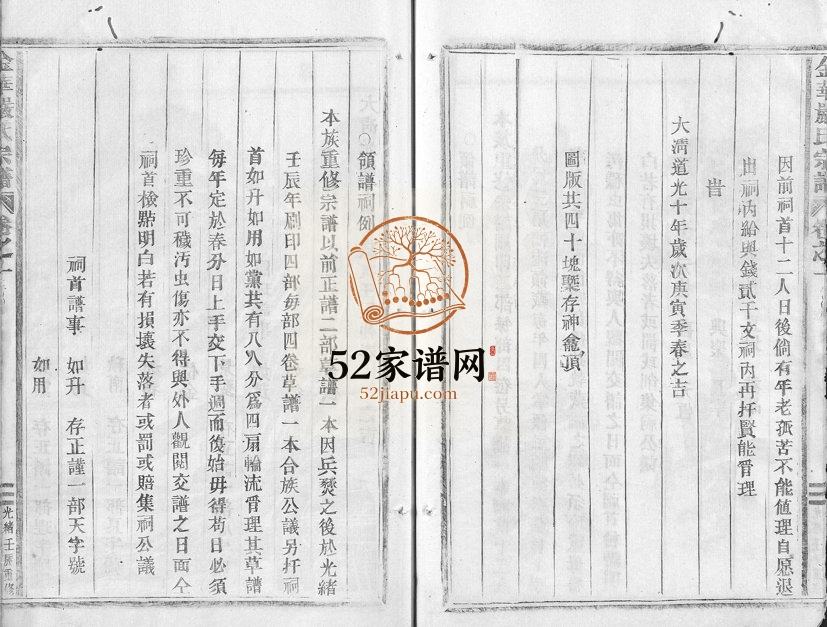 金華嚴氏宗譜
因前祠首十二人日後倘有年老孤苦不能值理自愿退
出祠內給與錢貳千文祠內再扦賢能管理
旹
大清道光十年歲次庚寅季春之吉
圖版共四十塊槩存神龕頂
○領譜祠例
本族重修宗譜以前正譜二部草譜一本因兵燹之後於光緒
壬辰年刷印四部每部四卷草譜一本合族公議另扦祠
首如升如用如黨共有八人分為四扇輪流管理其草譜
每年定於春分日上手交下手週而復始毋得苟且必須
珍重不可穢汚虫傷亦不得與外人觀閱交譜之日面仝
祠首檢點明白若有損壞失落者或罰或賠集祠公議
祠首譜事 如升 存正謹一部天字號
如用
金華嚴氏宗譜
光緒壬辰重修
52家谱网
52jiapu.com